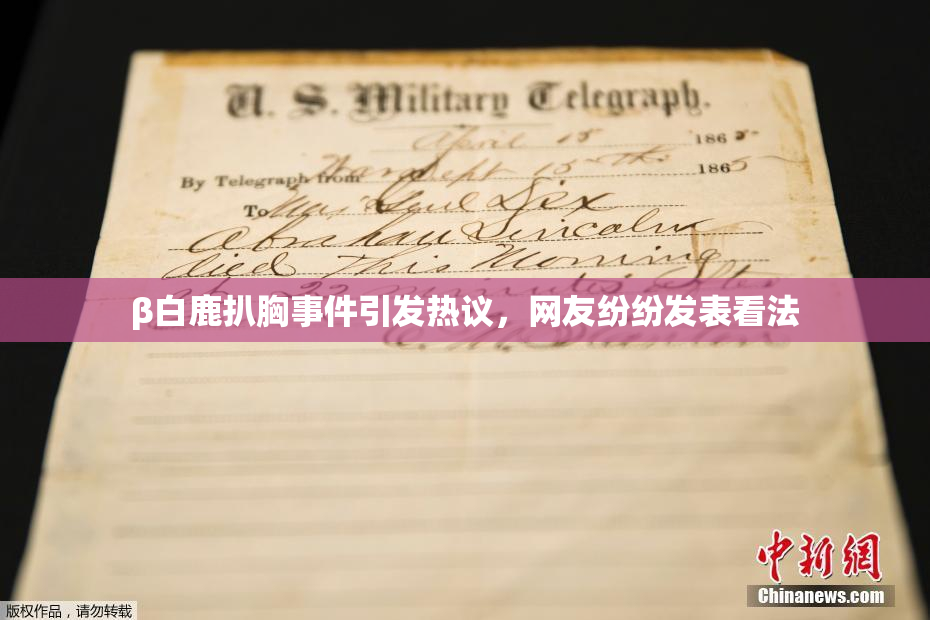 U. S. Military Telegraph.
April 15 1865
By Telegraph from War Dept 15th 1865
To Maj Genl Dix
Abraham Lincoln
died This Morning
at 22 minutes after
β白鹿扒胸事件引发热议，网友纷纷发表看法
E. M. Stanton
中新网
Chinanews.com
版权作品，请勿转载